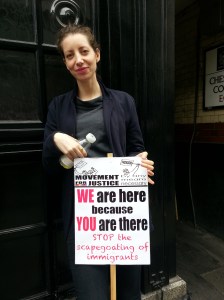 MOVEMENT
FOR JUSTICE
WE are here
because
YOU are there
STOP the
scapegoating of
immigrants